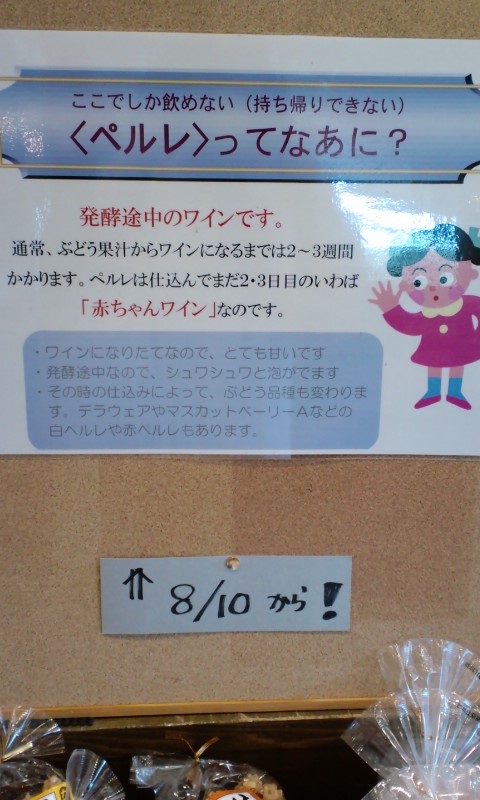 ここでしか飲めない（持ち帰りできない）
〈ペルレ〉ってなあに？
発酵途中のワインです。
通常、ぶどう果汁からワインになるまでは2～3週間
かかります。ペルレは仕込んでまだ2・3日目のいわば
「赤ちゃんワイン」なのです。
・ワインになりたてなので、とても甘いです
・発酵途中なので、シュワシュワと泡がでます
・その時の仕込みによって、ぶどう品種も変わりま
す。デラウェアやマスカットベーリーAなどの
白ペルレや赤ペルレもあります。
⇑ 8/10 から！